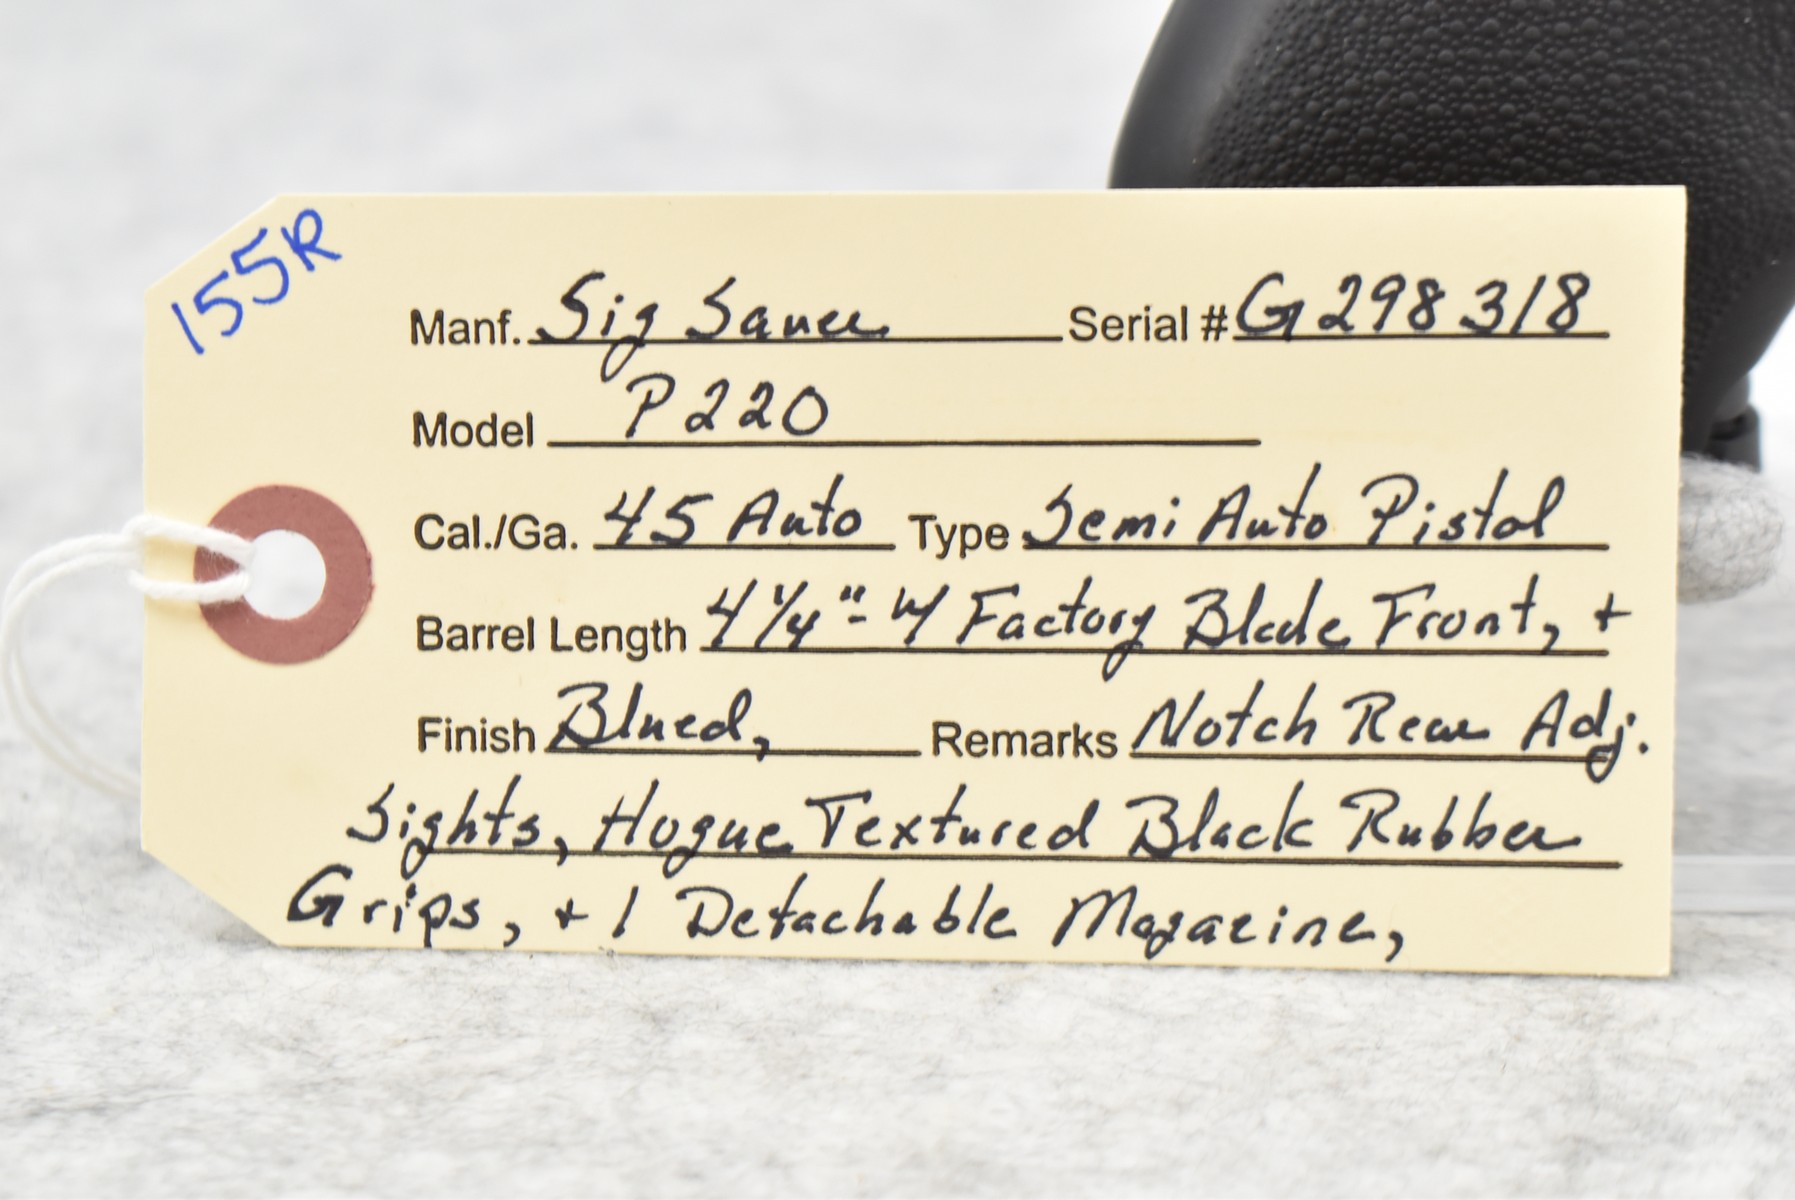 155R
Manf. Sig Sauer Serial # G298318
Model P220
Cal./Ga. 45 Auto Type Semi Auto Pistol
Barrel Length 4 1/4" - w/ Factory Blade Front, +
Finish Blued, Remarks Notch Rear Adj.
Sights, Hogue Textured Black Rubber
Grips, + 1 Detachable Magazine,